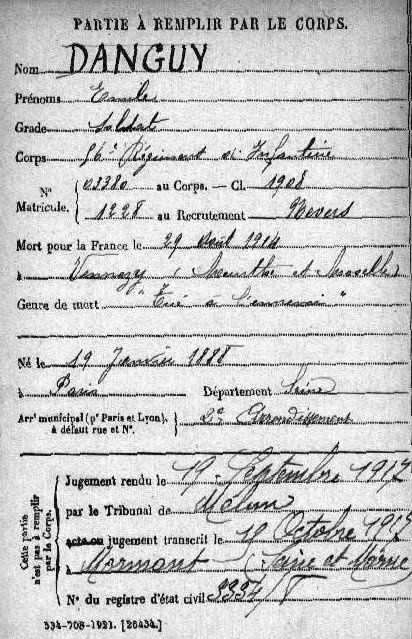 PARTIE À REMPLIR PAR LE CORPS.
Nom DANGUY
Prénoms Emile
Grade Soldat
Corps 56e Régiment d'Infanterie
N° Matricule. 03380 au Corps. — Cl. 1908
1228 au Recrutement Nevers
Mort pour la France le 29 Août 1914
à Vennezy (Meurthe et Moselle)
Genre de mort "Tué à l'ennemi"
Né le 19 Janvier 1888
à Paris Département Seine
Arrt municipal (pr Paris et Lyon), à défaut rue et N°. 2e Arrondissement
Cette partie n'est pas à remplir par le Corps.
Jugement rendu le 19 Septembre 1917
par le Tribunal de Melun
acte ou jugement transcrit le Octobre 1917
à Mormant (Seine et Marne)
N° du registre d'état civil 3334/
534-708-1921. [26434.]